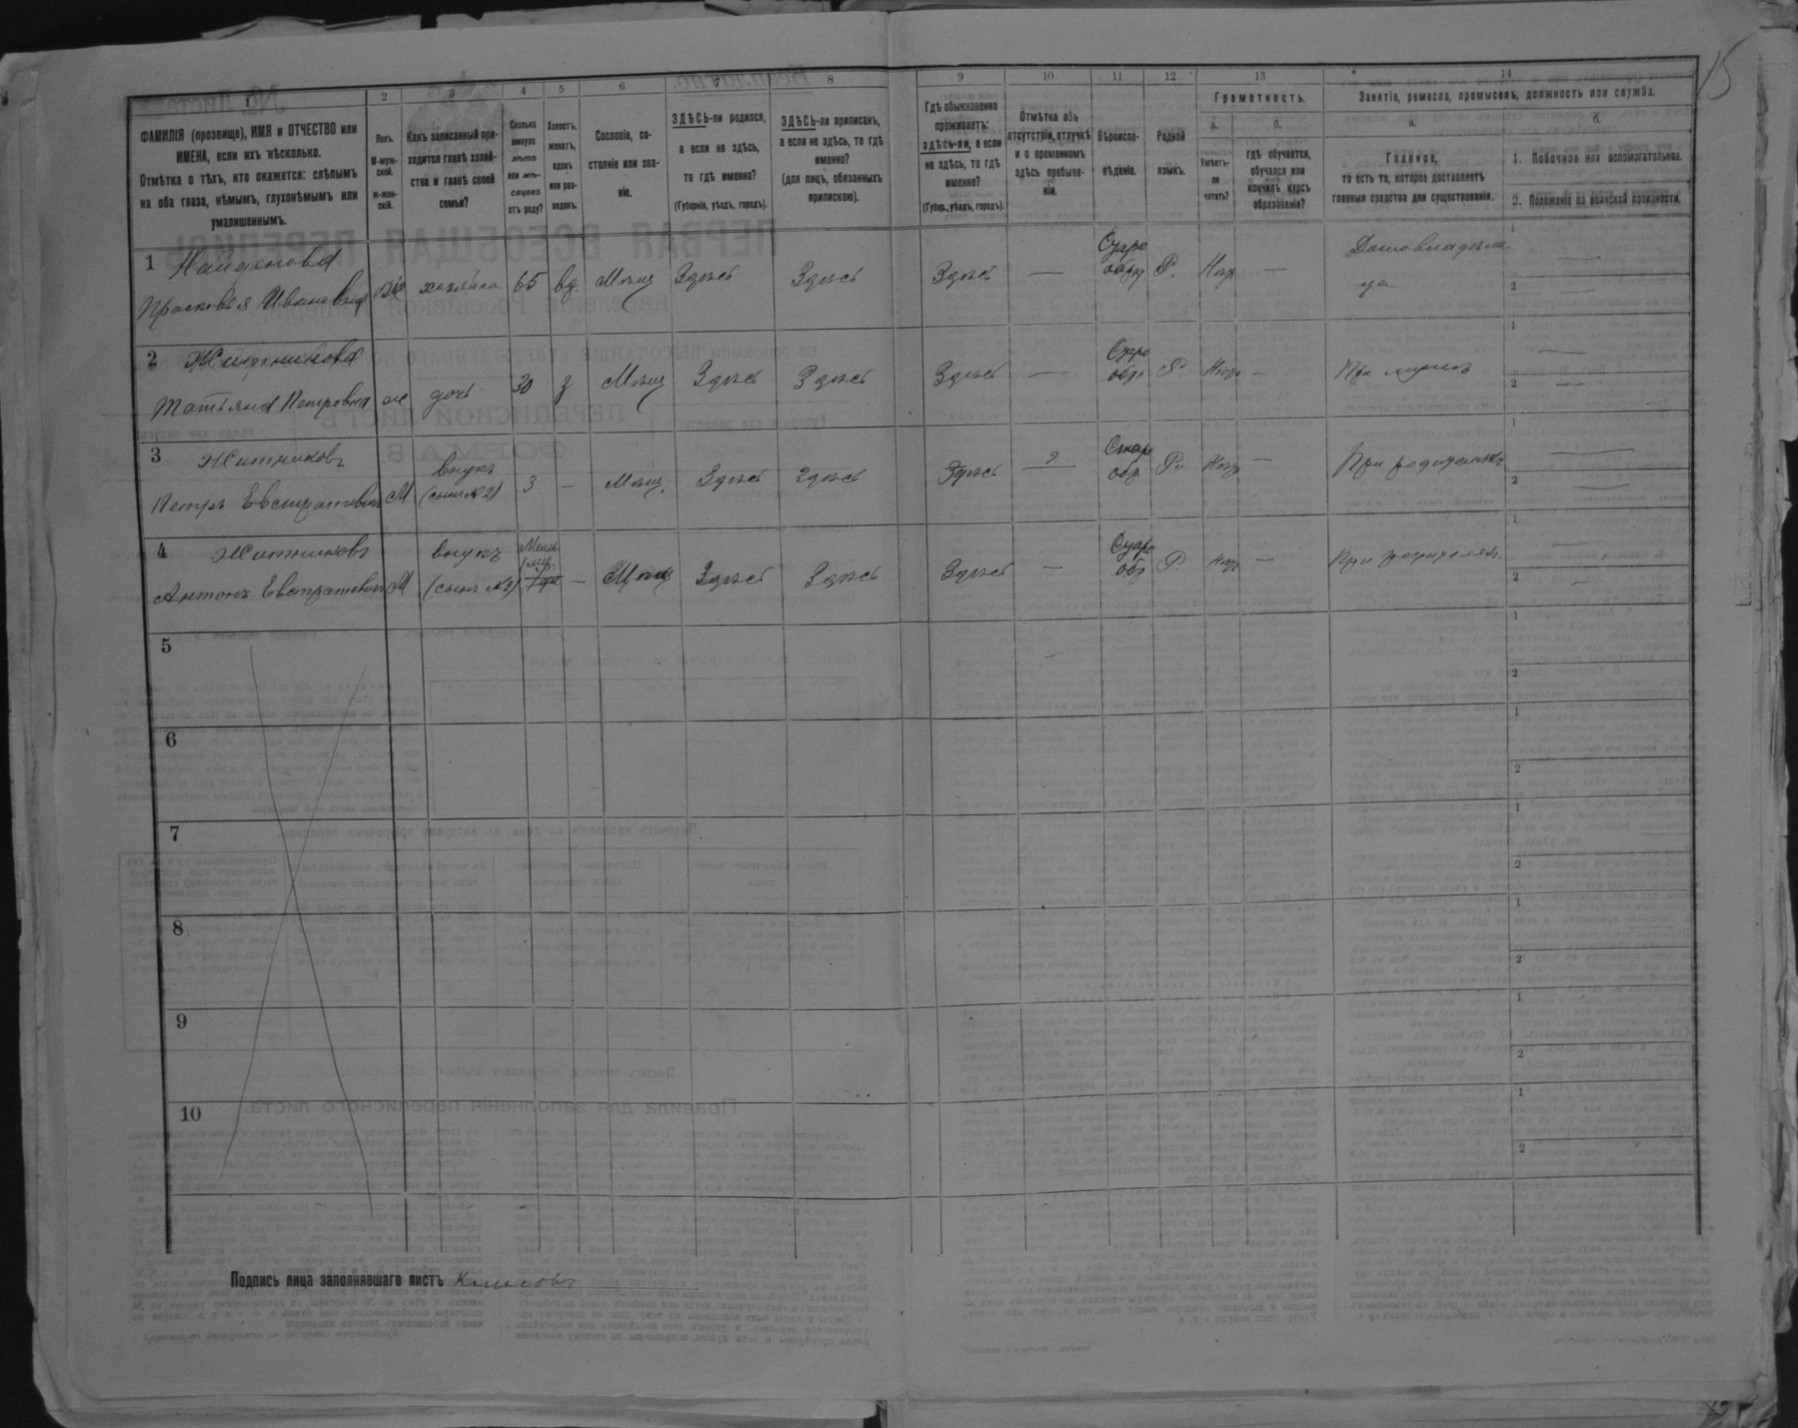 15
1 2 3 4 5 6 7 8 9 10 11 12 13 14
ФАМИЛІЯ (прозвище), ИМЯ и ОТЧЕСТВО или
ИМЕНА, если ихъ нѣсколько.
Отмѣтка о тѣхъ, кто окажется: слѣпымъ
на оба глаза, нѣмымъ, глухонѣмымъ или
умалишеннымъ.
Полъ.
М-муж-
ской.
Ж-жен-
скій.
Какъ записанный при-
ходится главѣ хозяй-
ства и главѣ своей
семьи?
Сколько
минуло
лѣтъ
или мѣ-
сяцевъ
отъ роду?
Холостъ,
женатъ,
вдовъ
или раз-
веденъ.
Сословіе, со-
стояніе или зва-
ніе.
ЗДѢСЬ-ли родился,
а если не здѣсь,
то гдѣ именно?
(Губернія, уѣздъ, городъ).
ЗДѢСЬ-ли приписанъ,
а если не здѣсь, то гдѣ
именно?
(для лицъ, обязанныхъ
припискою).
Гдѣ обыкновенно
проживаетъ:
здѣсь-ли, а если
не здѣсь, то гдѣ
именно?
(Губер., уѣздъ, городъ).
Отмѣтка объ
отсутствіи, отлучкѣ
и о временномъ
здѣсь пребыва-
ніи.
Вѣроиспо-
вѣданіе.
Родной
языкъ.
Грамотность.
а. б.
Умѣетъ-
ли
читать?
гдѣ обучается,
обучался или
кончилъ курсъ
образованія?
Занятіе, ремесло, промыселъ, должность или служба.
а. б.
Главное,
то есть то, которое доставляетъ
главныя средства для существованія.
1. Побочное или вспомогательное.
2. Положеніе по воинской повинности.
1 Найденова
Прасковья Ивановна Ж хозяйка 65 вд. Мѣщ Здѣсь Здѣсь Здѣсь — Старо обр Р. Нгр — Домовладѣли-
ца
1 —
2 —
2 Житникова
Татьяна Петровна ж дочь 30 з Мѣщ Здѣсь Здѣсь Здѣсь — Старо обр. Р Нгр —
1 —
2 —
3 Житниковъ
Петръ Евстратовичъ М внукъ (сынъ №2) 3 — Мѣщ. Здѣсь Здѣсь Здѣсь — Старо обр Р. Нгр — При родителяхъ
1 —
2 —
4 Житниковъ
Антонъ Евстратовичъ М внукъ (сынъ №2) — Мѣщ Здѣсь Здѣсь Здѣсь — Старо обр Р Нгр — При родителяхъ
1 —
2 —
5 1
2
6 1
2
7 1
2
8 1
2
9 1
2
10 1
2
Подпись лица заполнявшаго листъ